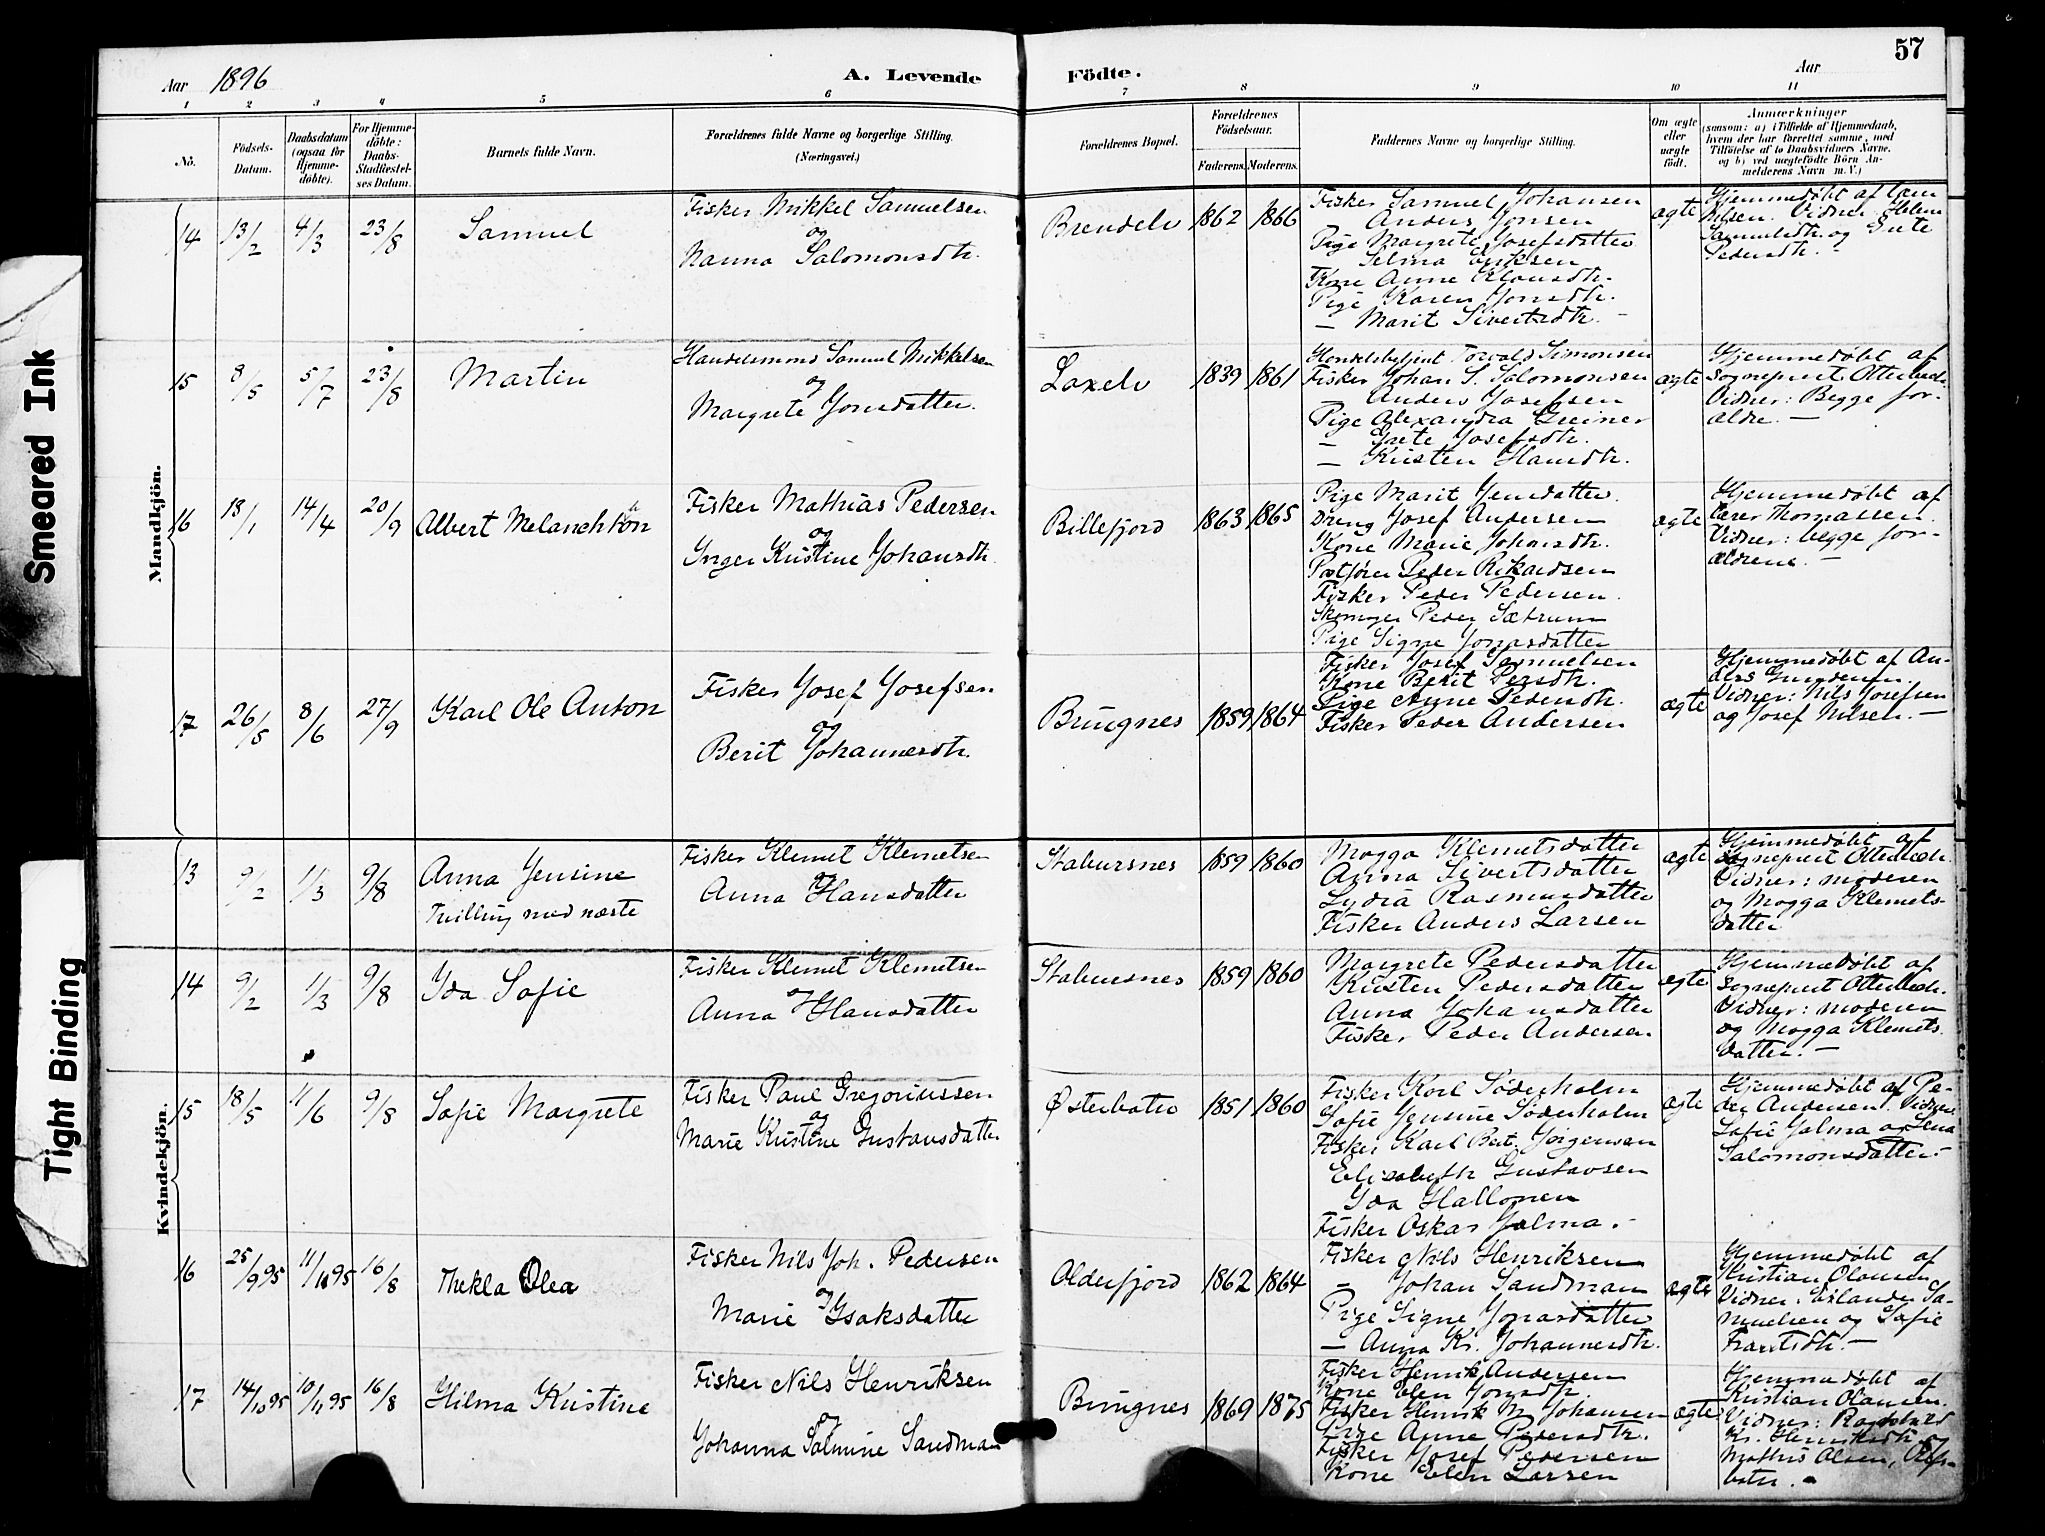 57
Aar 1896 A. Levende Födte. Aar
1 2 3 4 5 6 7 8 9 10 11
No.
Födsels-
Datum.
Daabsdatum
(ogsaa for
Hjemme-
döbte).
For Hjemme-
döbte:
Daabs-
Stadfæstel-
ses Datum.
Barnets fulde Navn.
Forældrenes fulde Navne og borgerlige Stilling.
(Næringsvei.)
Forældrenes Bopæl.
Forældrenes
Födselsaar.
Faderens. Moderens.
Faddernes Navne og borgerlige Stilling.
Om ægte
eller
uægte
födt.
Anmærkninger
(saasom: a) i Tilfælde af Hjemmedaab,
hvem der har forrettet samme, med
Tilföielse af to Daabsvidners Navne,
og b) ved uægtefödte Börn An-
melderens Navn m. V.)
Smeared Ink
Tight Binding
Mandkjön.
14 13/2 4/3 23/8 Samuel
Fisker Mikkel Samuelsen
og
Nanna Salomonsdtr.
Brendelv 1862 1866
Fisker Samuel Johansen
Anders Jonsen
Pige Margrete Josefsdatter
Selma Eriksen
Kone Anne Klausdtr.
Pige Karen Jonsdtr.
— Marit Sivertsdtr. —
ægte
Hjemmedøbt af Lars
Nilsen. Vidner: Helene
Samuelsdtr. og Grete
Pedersdtr. —
15 8/5 5/7 23/8 Martin
Handelsmand Samuel Mikkelsen
og
Margrete Jonsdatter.
Laxelv 1839 1861
Handelsbetjent Torvald Simonsen
Fisker Johan S. Salomonsen
— Anders Josefsen
Pige Alexandra Greiner
— Grete Josefsdtr.
— Kristen Hansdtr.
ægte
Hjemmedøbt af
sognepræst Otterbech.
Vidner: Begge for-
ældre. —
16 18/1 14/4 20/9 Albert Melanchton
Fisker Mathias Pedersen
og
Inger Kristine Johansdtr.
Billefjord 1863 1865
Pige Marit Jensdatter.
Dreng Josef Andersen
Kone Marie Johansdtr.
Postfører Peder Rikardsen
Fisker Peder Pedersen.
Skomager Peder Sætrum
Pige Signe Jonasdatter
ægte
Hjemmedøbt af
lærer Thomassen.
Vidner: begge for-
ældrene. —
17 26/5 8/6 27/9 Karl Ole Anton
Fisker Josef Josefsen
og
Berit Johannesdtr.
Brungnes 1859 1864
Fisker Josef Samuelsen
Kone Berit Persdtr.
Pige Anne Pedersdtr.
Fisker Peder Andersen
ægte
Hjemmedøbt af An-
ders Gundersen.
Vidner: Nils Josefsen
og Josef Nilsen. —
Kvindekjön.
13 9/2 1/3 9/8 Anna Jensine
Tvilling med næste
Fisker Klemet Klemetsen
og
Anna Hansdatter
Stabursnes 1859 1860
Mogga Klemetsdatter
Anna Sivertsdatter
Lydia Rasmusdatter
Fisker Anders Larsen
ægte
Hjemmedøbt af
sognepræst Otterbech.
Vidner: moderen
og Mogga Klemets-
datter
14 9/2 1/3 9/8 Ida Sofie
Fisker Klemet Klemetsen
og
Anna Hansdatter
Stabursnes 1859 1860
Margrete Pedersdatter
Kristen Pedersdatter
Anna Johansdatter
Fisker Peder Andersen
ægte
Hjemmedøbt af
sognepræst Otterbech.
Vidner: moderen
og Mogga Klemets-
datter. —
15 18/5 11/6 9/8 Sofie Margrete
Fisker Paul Gregoriussen
og
Marie Kristine Gustavsdatter
Østerbotn 1851 1860
Fisker Karl Söderholm
Sofie Jensine Söderholm
Fisker Karl Bert. Jørgensen
Elisabeth Gustavsen
Ida Hallonen
Fisker Oskar Jalma. —
ægte
Hjemmedøbt af Pe-
der Andersen. Vidner:
Sofie Jalma og Lena
Salomonsdatter. —
16 25/9 95 11/11 95 16/8 Thekla Olea
Fisker Nils Joh. Pedersen
og
Marie Isaksdatter
Olderfjord 1862 1864
Fisker Nils Henriksen
— Johan Sandman
Pige Signe Jonasdatter
— Anna Kr. Johannesdtr.
ægte
Hjemmedøbt af
Kristian Olausen
Vidner: Erlander Sa-
muelsen og Sofie
Frantsdtr. —
17 14/10 95 10/11 95 16/8 Hilma Kristine
Fisker Nils Henriksen
og
Johanna Salmine Sandman
Brungnes 1869 1875
Fisker Henrik Andersen
Kone Elen Jonsdtr.
Fisker Henrik M. Johansen
Pige Anne Pedersdtr.
Fisker Josef Pedersen
Kone Elen Larsen
ægte
Hjemmedøbt af
Kristian Olausen.
Vidner: Ragnhild
Kr. Henriksdtr. og
Mathis Olsen,
botn. —